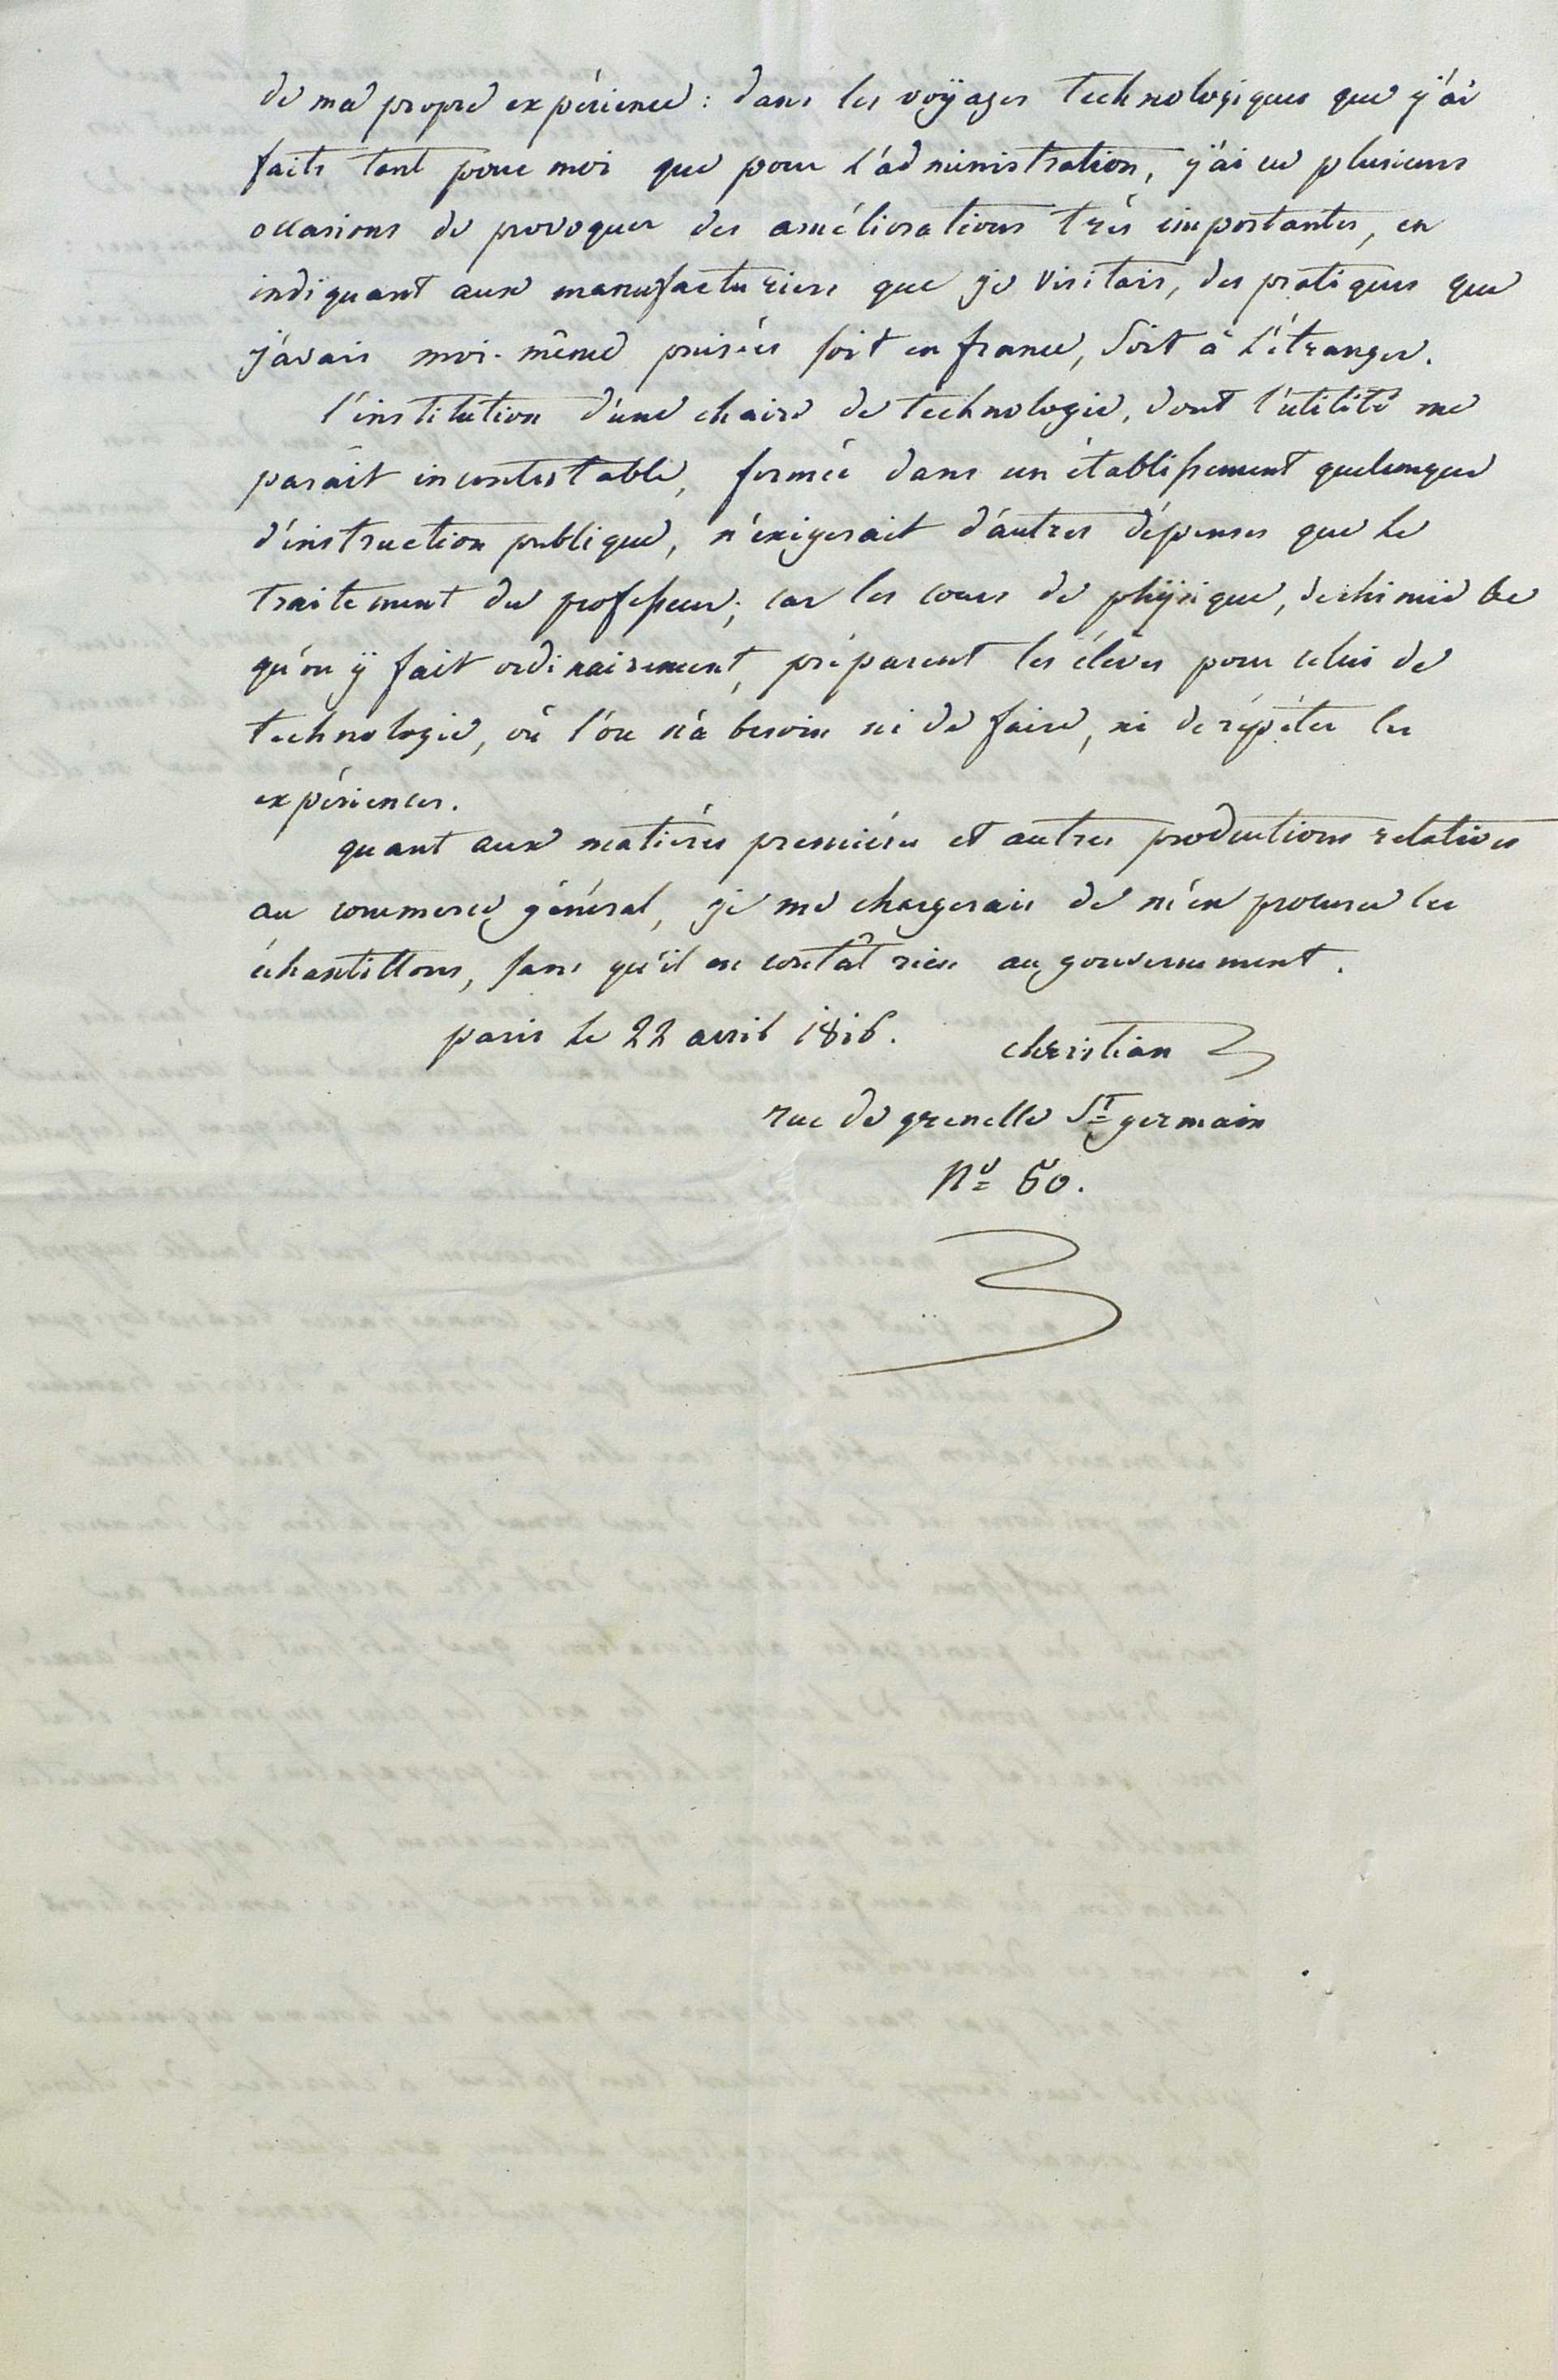 de ma propre expérience : dans les voÿages technologiques que j'ai
faits tant pour moi que pour l'administration, j'ai eu plusieurs
occasions de provoquer des améliorations très importantes, en
indiquant aux manufacturiers que je visitais, des pratiques que
j'avais moi-même puisées soit en france, soit à l'étranger.
l'institution d'une chaire de technologie, dont l'utilité me
parait incontestable, formée dans un établissement quelconque
d'instruction publique, n'exigerait d'autres dépenses que le
traitement du professeur ; car les cours de phÿsique, de chimie &c
qu'on ÿ fait ordinairement, préparent les éleves pour celui de
technologie, où l'on n'a besoin ni de faire, ni de répéter les
expériences.
quant aux matières premières et autres productions relatives
au commerce général, je me chargerais de m'en procurer les
échantillons, sans qu'il en coutât rien au gouvernement.
paris le 22 avril 1816. christian
rue de grenelle St germain
No 50.